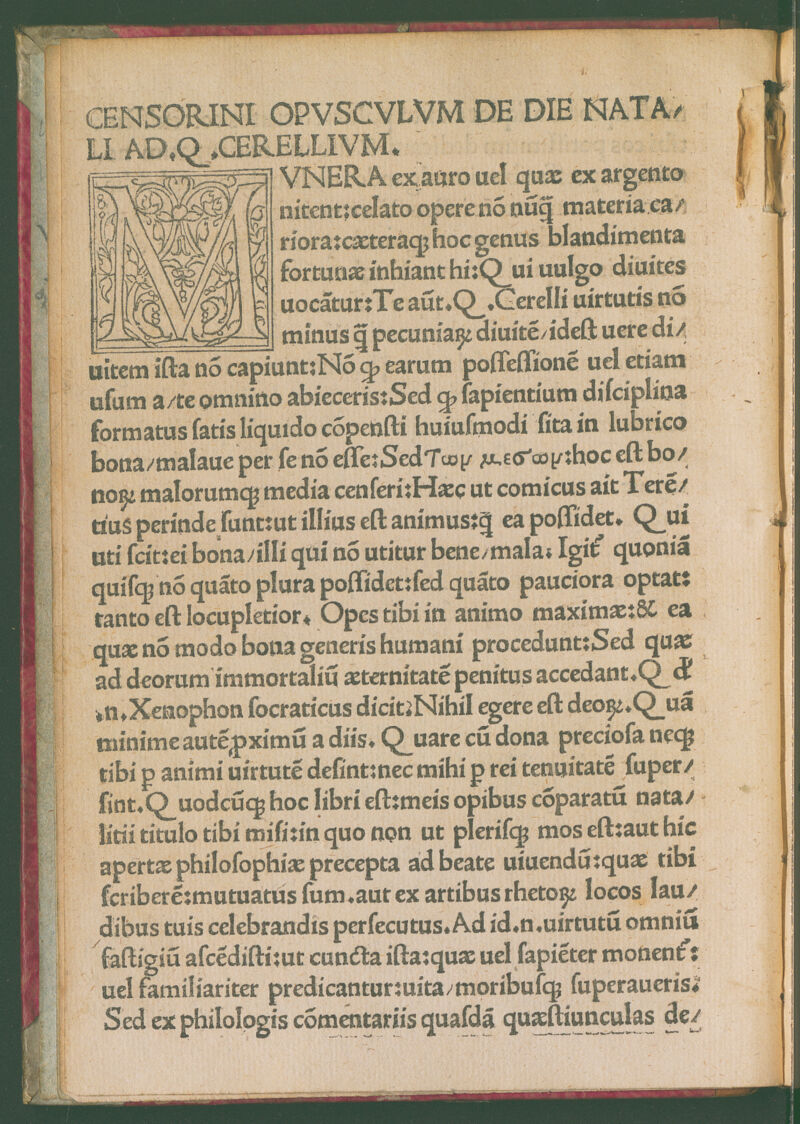 CENSORINI OPVSCVLVM DE DIE NATA/
LI AD.Q.CERELLIVM.
MVNERA ex auro uel quæ ex argento
nitent:celato opere nõ nũq̃ materia ca/
riora:cæteraqꝫ hoc genus blandimenta
fortunæ inhiant hi:Qui uulgo diuites
uocãtur:Te aũt.Q.Cerelli uirtutis nõ
minus q̃ pecuniaꝝ diuitẽ/ideſt uere di/
uitem iſta nõ capiunt:Nõ ꝙ earum poſſeſſionẽ uel etiam
uſum a/te omnino abieceris:Sed ꝙ ſapientium diſciplina
formatus ſatis liquido cõpenſti huiuſmodi ſita in lubrico
bona/malaue per ſe nõ eſſe:Sed των μεσων:hoc eſt bo/
noꝝ malorumqꝫ media cenſeri:Hæc ut comicus ait Terẽ/
tius perinde ſunt:ut illius eſt animus:q̃ ea poſſidet. Qui
uti ſcit:ei bona/illi qui nõ utitur bene/mala. Igit᷑ quoniã
quiſqꝫ nõ quãto plura poſſidet:ſed quãto pauciora optat:
tanto eſt locupletior. Opes tibi in animo maximæ:& ea
quæ nõ modo bona generis humani procedunt:Sed quæ
ad deorum immortaliũ æternitatẽ penitus accedant.Qđ
.n.Xenophon ſocraticus dicit:Nihil egere eſt deoꝝ.Quã
minime autẽ ꝓximũ a diis. Quare cũ dona precioſa neqꝫ
tibi p animi uirtutẽ deſint:nec mihi p rei tenuitatẽ ſuper/
ſint.Quodcũqꝫ hoc libri eſt:meis opibus cõparatũ nata/
litii titulo tibi miſi:in quo non ut pleriſqꝫ mos eſt:aut hic
apertæ philoſophiæ precepta ad beate uiuendũ:quæ tibi
ſcriberẽ:mutuatus ſum.aut ex artibus rhetoꝝ locos lau/
dibus tuis celebrandis perſecutus.Ad id.n.uirtutũ omniũ
faſtigiũ aſcẽdiſti:ut cuncta iſta:quæ uel ſapiẽter monent᷑:
uel familiariter predicantur:uita/moribuſqꝫ ſuperaueris.
Sed ex philologis cõmentariis quaſdã quæſtiunculas de/